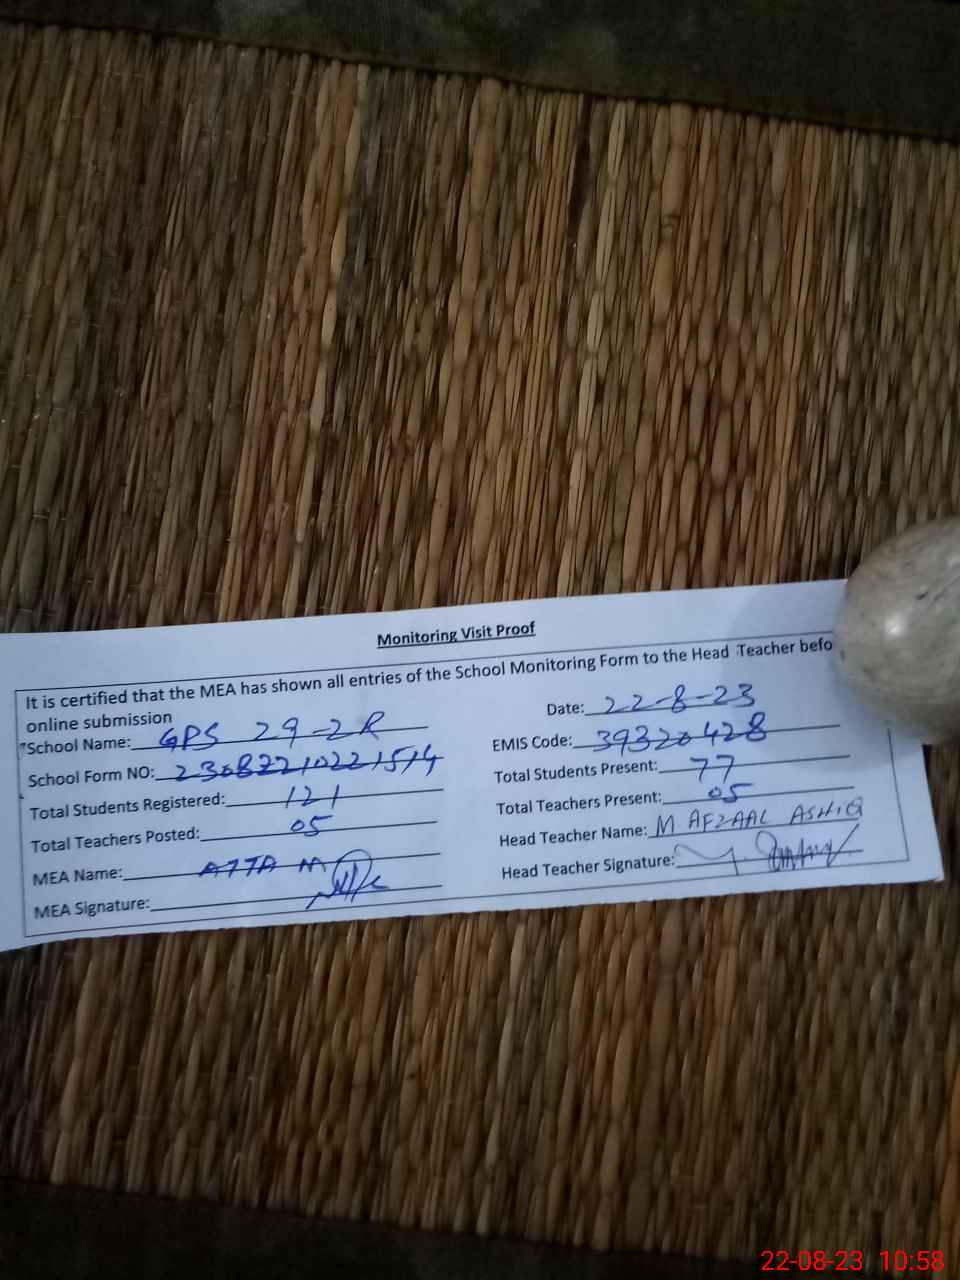 Monitoring Visit Proof
It is certified that the MEA has shown all entries of the School Monitoring Form to the Head Teacher befo
online submission
Date: 22-8-23
School Name: GPS 29-2R
EMIS Code: 39320428
School Form NO: 23082210221514
Total Students Present: 77
Total Students Registered: 121
Total Teachers Present: 05
Total Teachers Posted: 05
Head Teacher Name: M. AFZAAL ASHIQ
MEA Name: ATTA M
Head Teacher Signature:
MEA Signature:
22-08-23 10:58